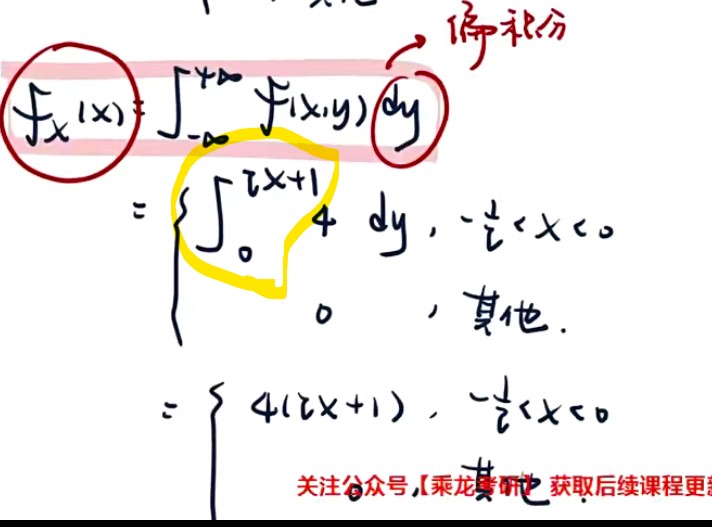 其他
偏积分
f_X(x) = ∫_{-∞}^{+∞} f(x,y) dy
= { ∫_0^{2x+1} 4 dy , -1/2 < x < 0
0 , 其他.
= { 4(2x+1) , -1/2 < x < 0
0 , 其他.
关注公众号【乘龙考研】获取后续课程更新